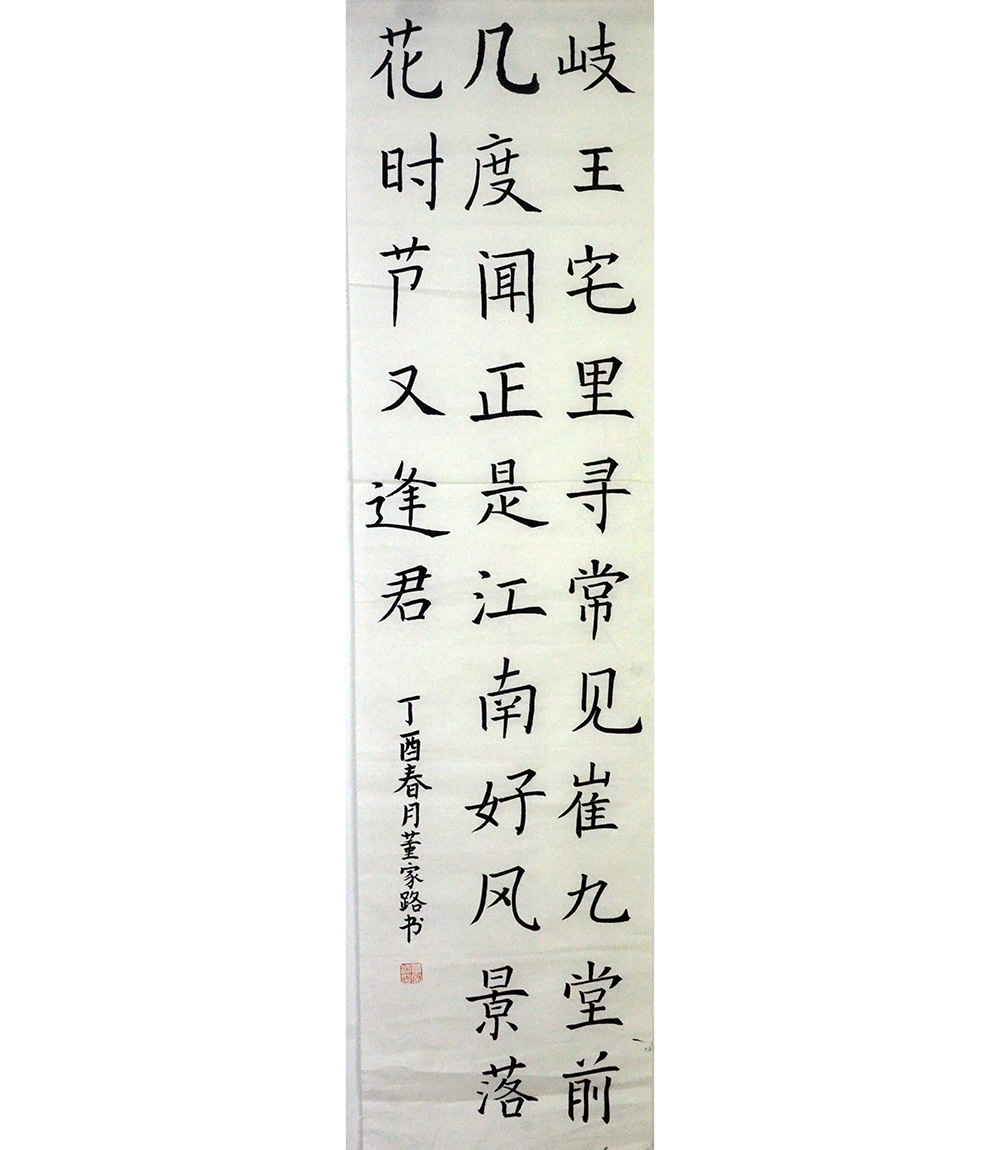 岐王宅里寻常见崔九堂前
几度闻正是江南好风景落
花时节又逢君
丁酉春月董家路书